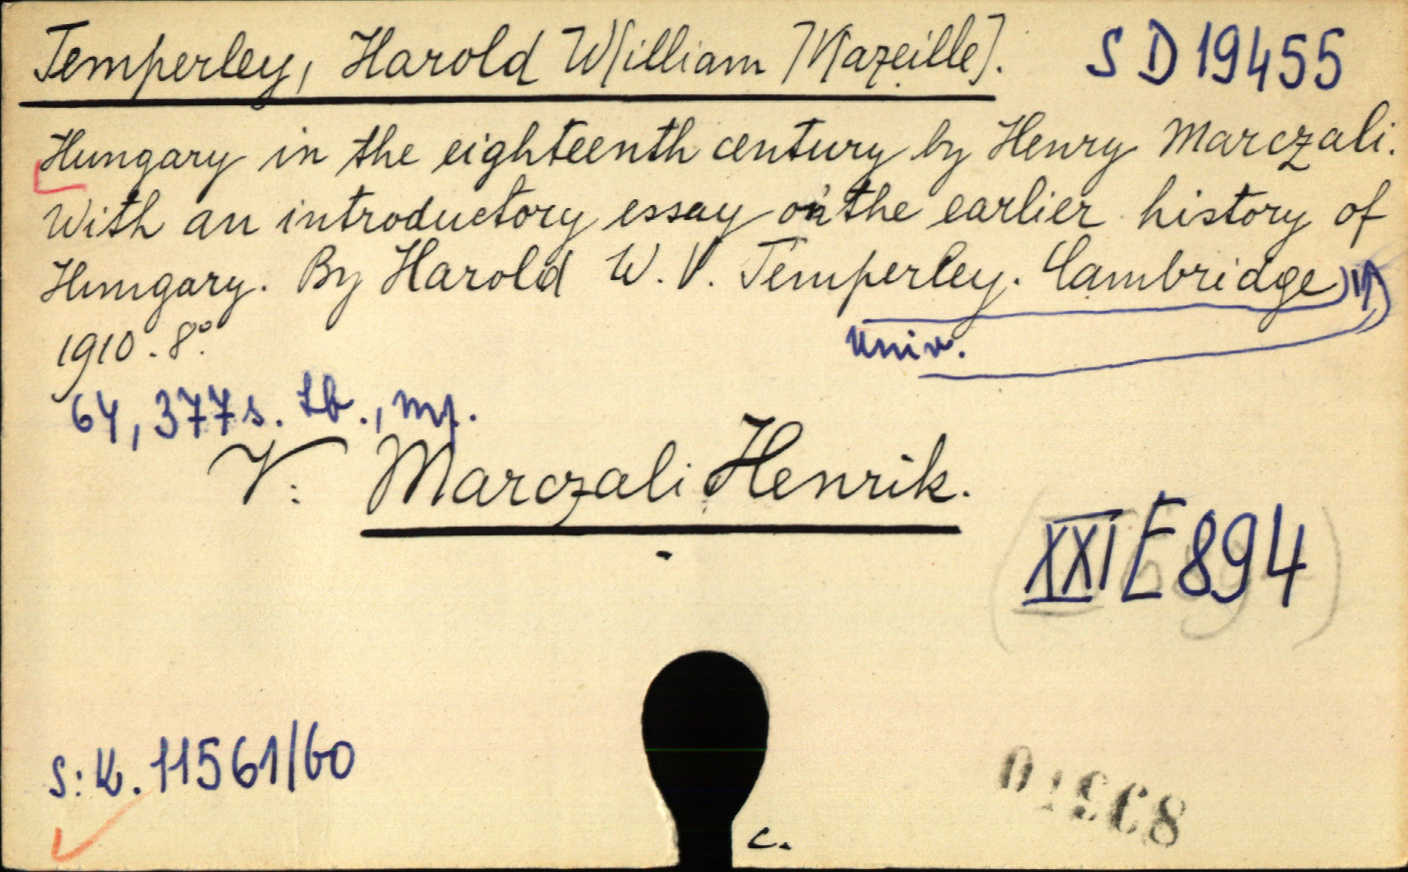 Temperley, Harold W[illiam V[azeille].
SD 19455
Hungary in the eighteenth century by Henry Marczali.
With an introductory essay on the earlier history of
Hungary. By Harold W. V. Temperley. Cambridge
1910. 8°.
Univ.
64, 377 s. tb., mf.
V: Marczali Henrik.
XXI E 894
s: K. 11561/60
c.